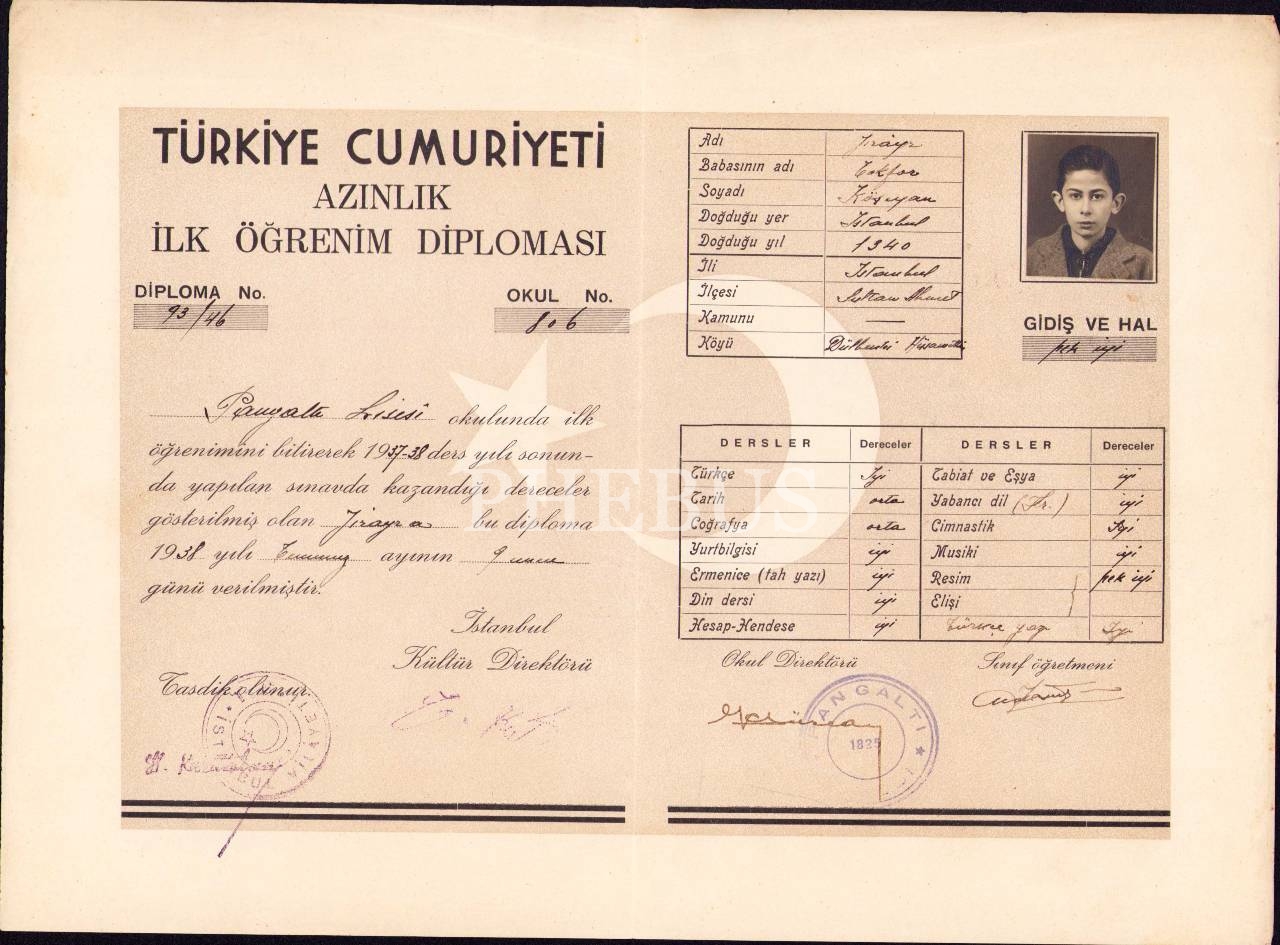 TÜRKİYE CUMURİYETİ
AZINLIK
İLK ÖĞRENİM DİPLOMASI
DİPLOMA No.
93/46
OKUL No.
806
Pangaltı Lisesi okulunda ilk
öğrenimini bitirerek 1937-38 ders yılı sonun-
da yapılan sınavda kazandığı dereceler
gösterilmiş olan Jirayra bu diploma
1938 yılı Temmuz ayının 9 uncu
günü verilmiştir.
İstanbul
Kültür Direktörü
Tasdik olunur
Adı Jirayr
Babasının adı Tokfor
Soyadı Köseyan
Doğduğu yer İstanbul
Doğduğu yıl 1340
İli İstanbul
İlçesi Sultan Ahmet
Kamunu —
Köyü
GİDİŞ VE HAL
pek iyi
DERSLER Dereceler DERSLER Dereceler
Türkçe İyi Tabiat ve Eşya iyi
Tarih orta Yabancı dil (Fr.) iyi
Coğrafya orta Cimnastik İyi
Yurtbilgisi iyi Musiki iyi
Ermenice (tah yazı) iyi Resim pek iyi
Din dersi iyi Elişi
Hesap-Hendese iyi Türkçe yazı İyi
Okul Direktörü
Sınıf öğretmeni
PANGALTI
1825
PHEBUS